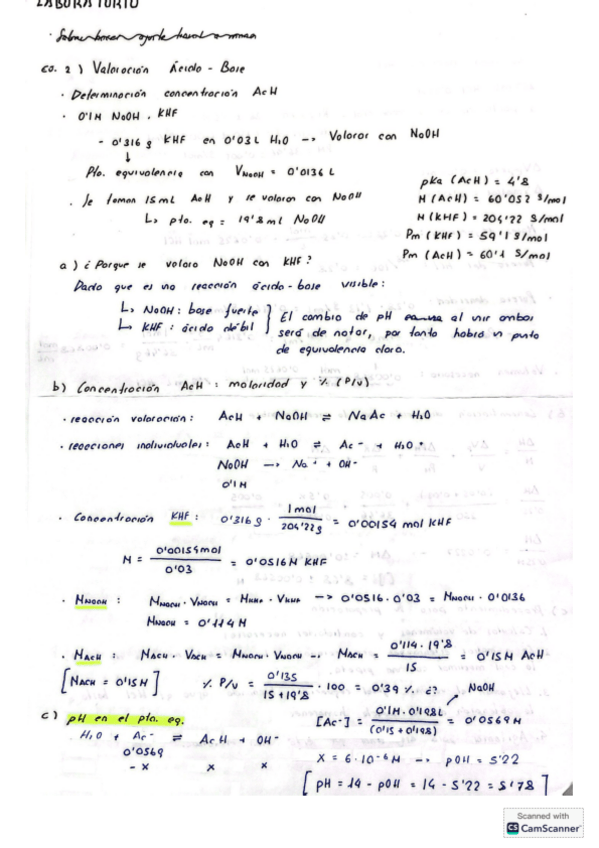 LABORATORIO
co. 2) Valoración Ácido - Base
· Determinación concentración AcH
· 0'1M NaOH, KHF
- 0'316 g KHF en 0'03 L H₂O --> Valorar con NaOH
↓
Pto. equivalencia con V_NaOH = 0'0136 L
· Se toman 15 mL AcH y se valoran con NaOH
↳ pto. eq = 19'8 mL NaOH
pKa (AcH) = 4'8
M (AcH) = 60'052 g/mol
M (KHF) = 204'22 g/mol
Pm (KHF) = 59'1 g/mol
Pm (AcH) = 60'1 g/mol
a) ¿Porque se valora NaOH con KHF?
Dado que es una reacción ácido-base visible:
↳ NaOH: base fuerte
↳ KHF: ácido débil
} El cambio de pH al unir ambos
será de notar, por tanto habrá un punto
de equivalencia claro.
b) Concentración AcH: molaridad y % (P/V)
· reacción valoración: AcH + NaOH ⇌ NaAc + H₂O
· reacciones individuales: AcH + H₂O ⇌ Ac⁻ + H₃O⁺
NaOH --> Na⁺ + OH⁻
0'1M
· Concentración KHF: 0'316 g · 1mol / 204'22g = 0'00154 mol KHF
M = 0'00154mol / 0'03 = 0'0516M KHF
· M_NaOH: M_NaOH · V_NaOH = M_KHF · V_KHF --> 0'0516 · 0'03 = M_NaOH · 0'0136
M_NaOH = 0'114M
· M_AcH: M_AcH · V_AcH = M_NaOH · V_NaOH → M_AcH = 0'114 · 19'8 / 15 = 0'15M AcH
[M_AcH = 0'15M] % P/V = 0'135 / 15 + 19'8 · 100 = 0'39 % ¿?
c) pH en el pto. eq.
NaOH
[Ac⁻] = 0'1M · 0'0198L / (0'015 + 0'0198) = 0'0569M
· H₂O + Ac⁻ ⇌ AcH + OH⁻
0'0569
- x x x
X = 6·10⁻⁶ M --> pOH = 5'22
[pH = 14 - pOH = 14 - 5'22 = 8'78]
Scanned with
CS CamScanner